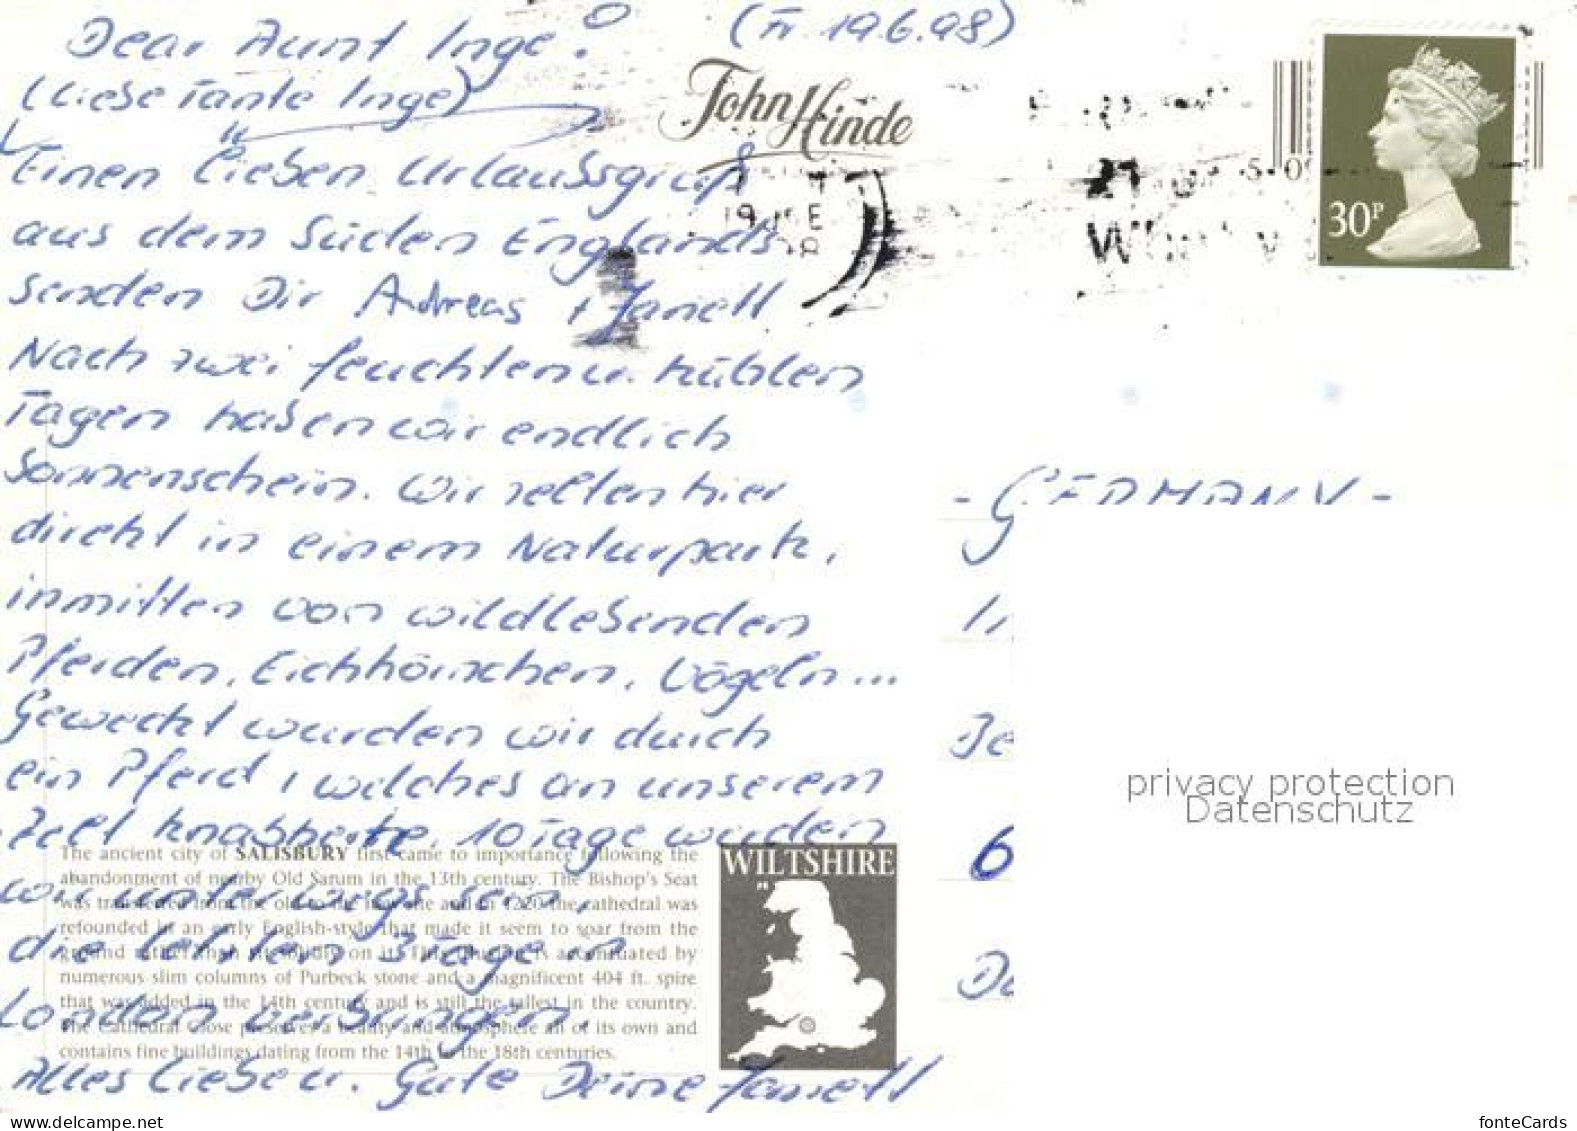 Dear Aunt Inge!
(Fr. 19.6.98)
(Liebe Tante Inge)
John Hinde
Einen lieben Urlaubsgruß
aus dem Süden Englands
senden Dir Andreas + Janett
Nach zwei feuchten u. kühlen
Tagen haben wir endlich
Sonnenschein. Wir zelten hier
direkt in einem Naturpark,
inmitten von wildlebenden
Pferden, Eichhörnchen, Vögeln...
Geweckt wurden wir durch
ein Pferd, welches an unserem
Zelt knabberte. 10 Tage werden
wir unterwegs sein,
die letzten 3 Tage in
London verbringen.
Alles Liebe u. Gute Deine Janett
30P
- GERMANY -
privacy protection
Datenschutz
The ancient city of SALISBURY first came to importance following the
abandonment of nearby Old Sarum in the 13th century. The Bishop's Seat
was transferred from the old to the new site and in 1220 the cathedral was
refounded in an early English-style that made it seem to soar from the
ground rather than sit solidly on it. This is accentuated by
numerous slim columns of Purbeck stone and a magnificent 404 ft. spire
that was added in the 14th century and is still the tallest in the country.
The Cathedral Close preserves a beauty and atmosphere all of its own and
contains fine buildings dating from the 14th to the 18th centuries.
WILTSHIRE
www.delcampe.net
fonteCards